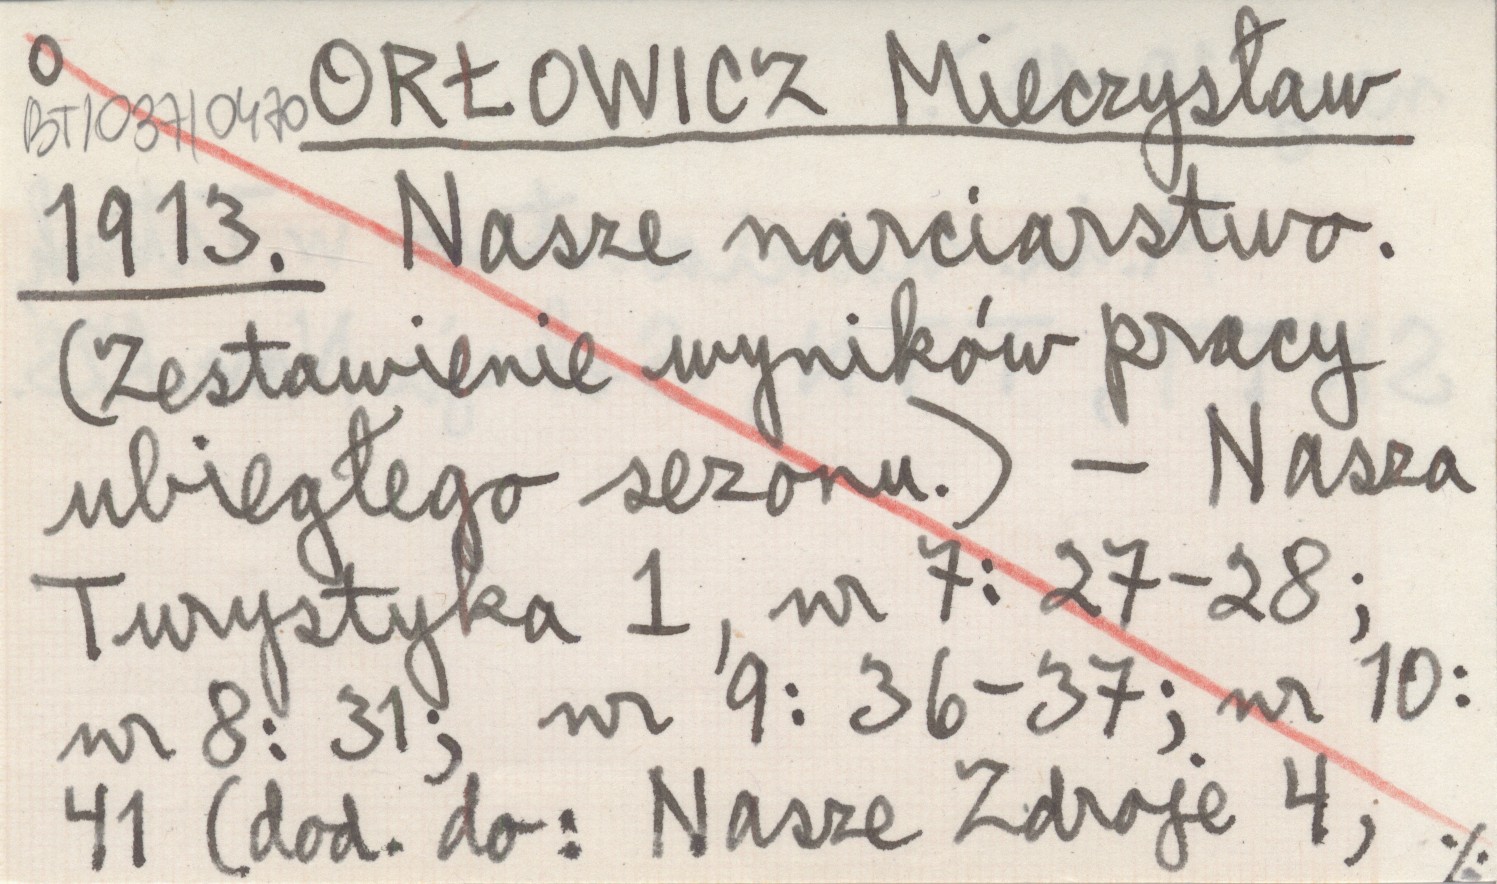 O ORŁOWICZ Mieczysław
BT/1037/0470
1913. Nasze narciarstwo.
(Zestawienie wyników pracy
ubiegłego sezonu.) – Nasza
Turystyka 1, nr 7: 27–28;
nr 8: 31; nr 9: 36–37; nr 10:
41 (dod. do: Nasze Zdroje 4; ·/·